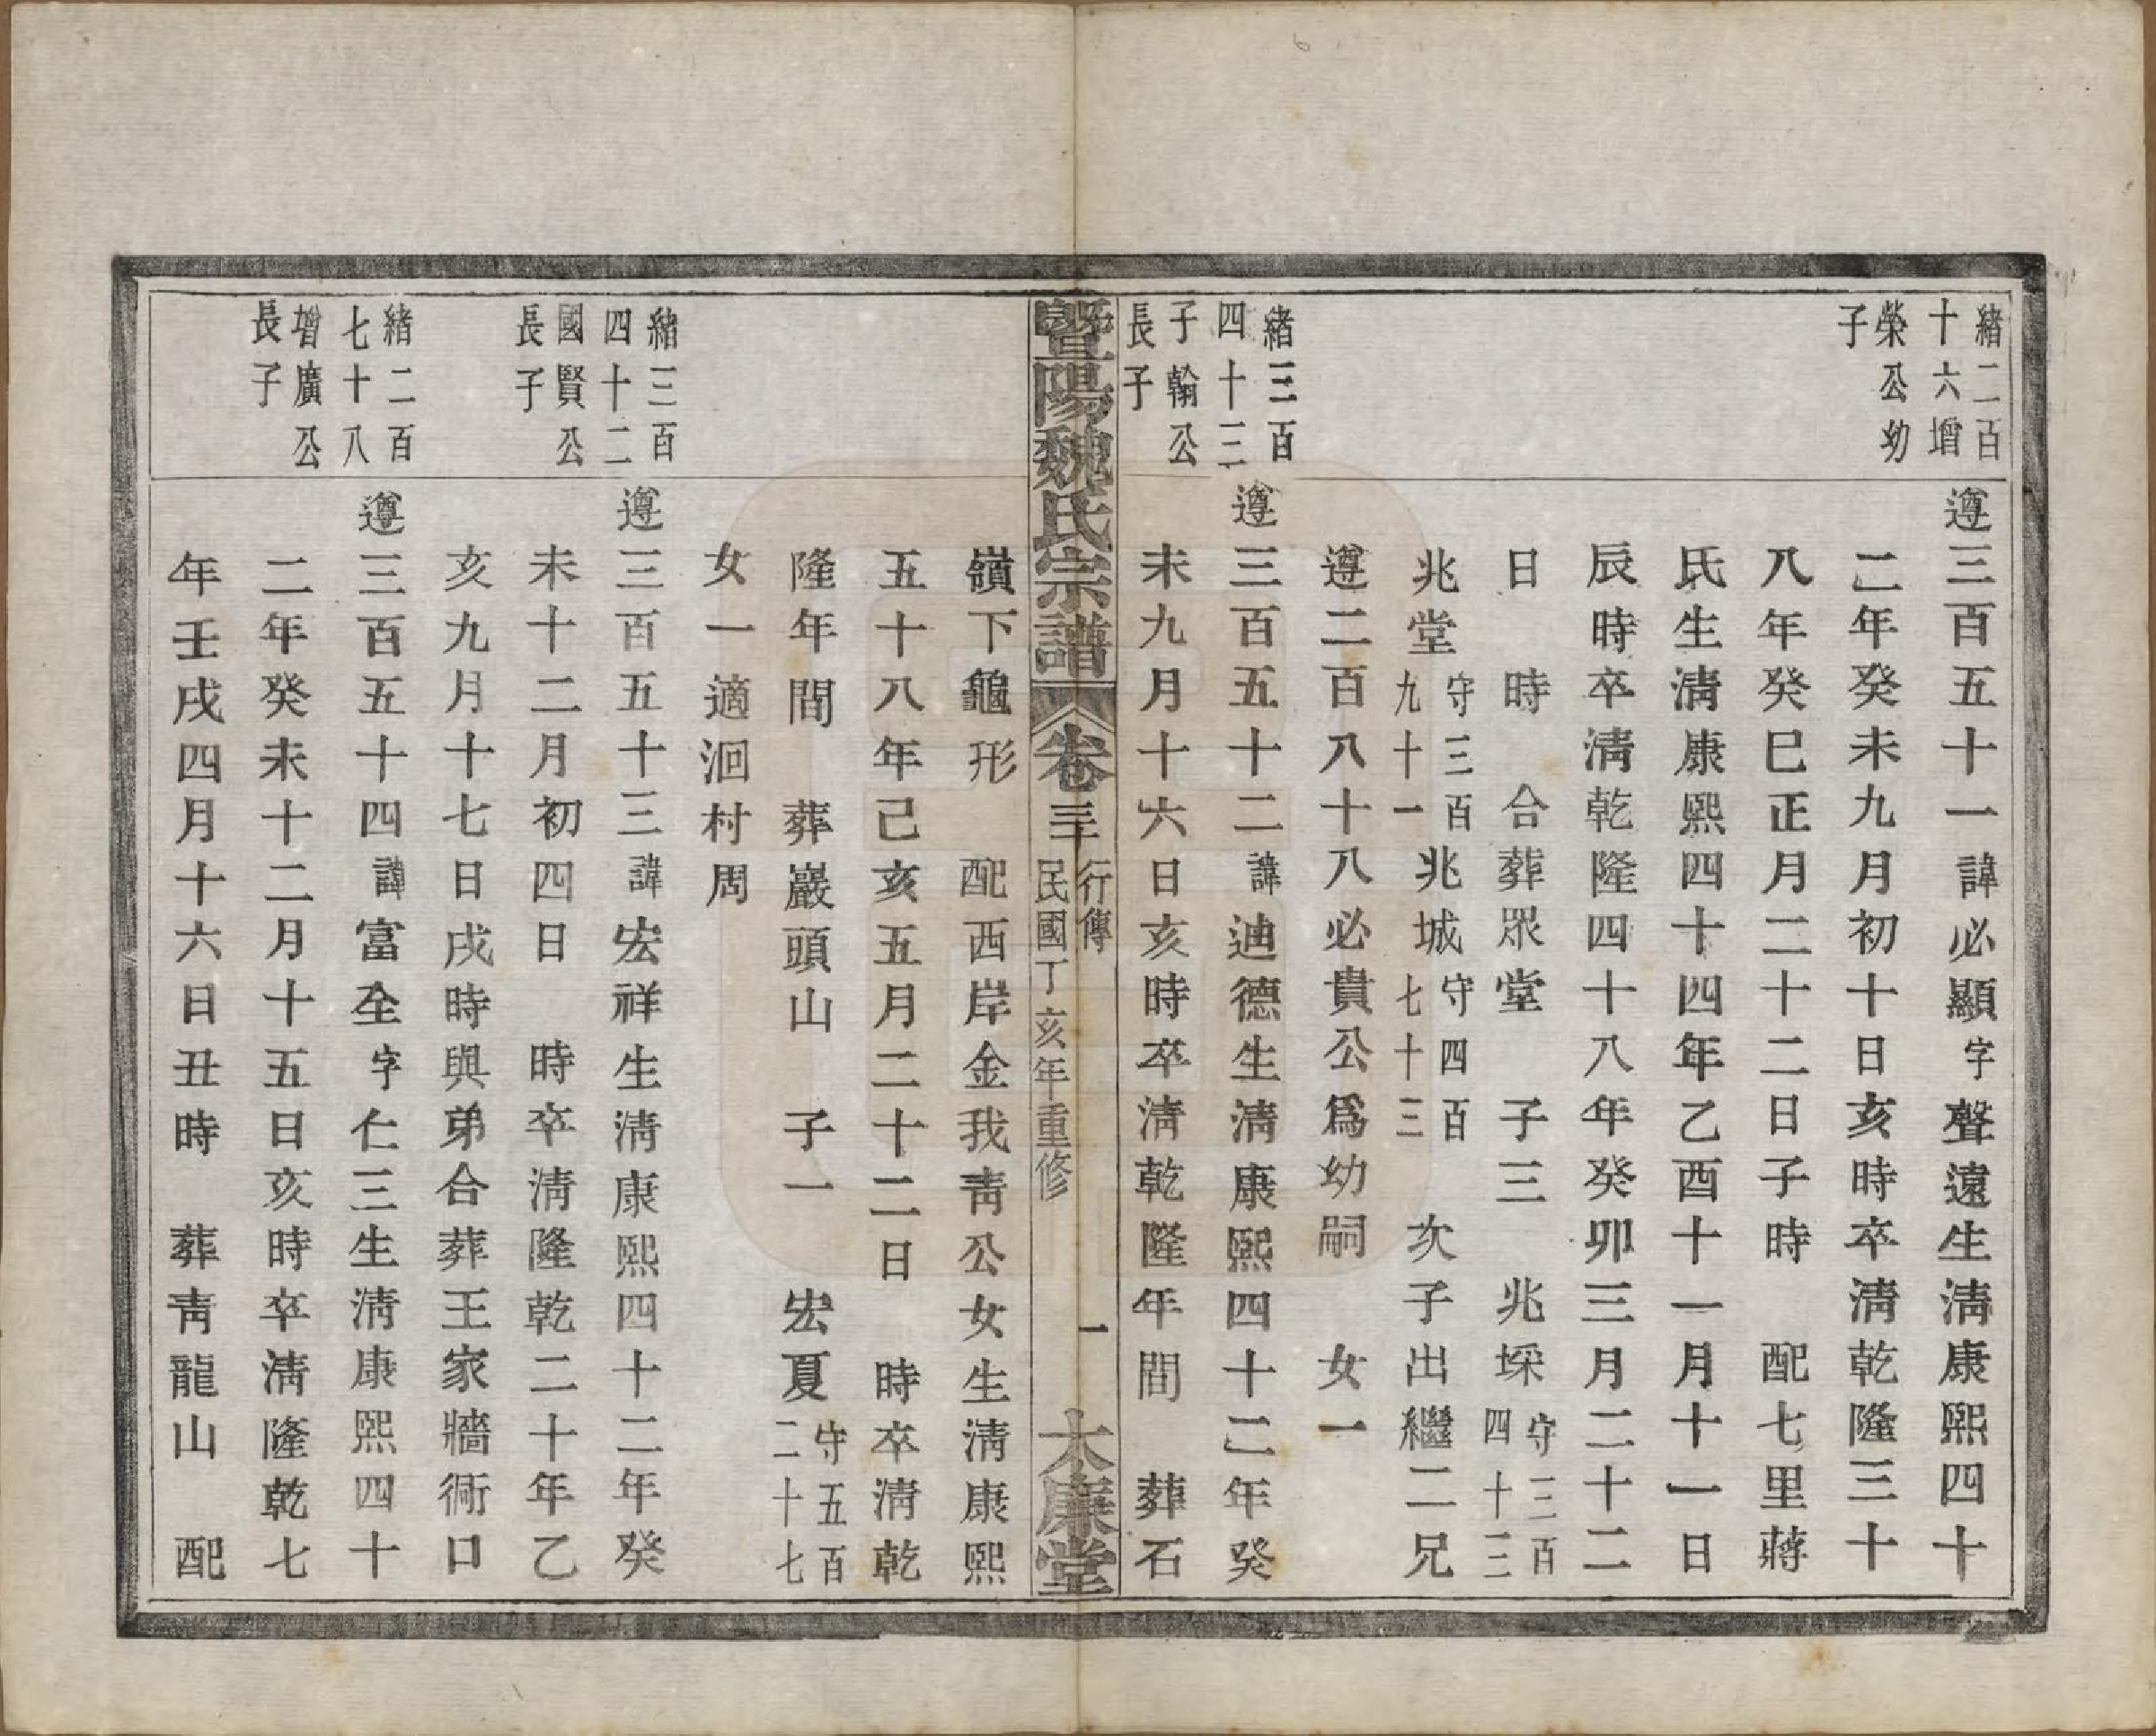 緒二百
十六增
榮公幼
子
遵三百五十一諱必顯字聲遠生淸康熙四十
二年癸未九月初十日亥時卒淸乾隆三十
八年癸巳正月二十二日子時 配七里蔣
氏生淸康熙四十四年乙酉十一月十一日
辰時卒淸乾隆四十八年癸卯三月二十二
日 時 合葬眾堂 子三 兆埰守三百四十三
兆堂守三百九十一 兆城守四百七十三 次子出繼二兄
遵二百八十八必貴公爲幼嗣 女一
緒三百
四十三
子翰公
長子
遵三百五十二諱迪德生淸康熙四十二年癸
未九月十六日亥時卒淸乾隆年間 葬石
暨陽魏氏宗譜 卷三十 行傳 民國丁亥年重修 一 大廉堂
嶺下龜形 配西岸金我靑公女生淸康熙
五十八年己亥五月二十二日 時卒淸乾
隆年間 葬巖頭山 子一 宏夏守五百二十七
女一適洄村周
緒三百
四十二
國賢公
長子
遵三百五十三諱宏祥生淸康熙四十二年癸
未十二月初四日 時卒淸隆乾二十年乙
亥九月十七日戌時與弟合葬王家牆衕口
緒二百
七十八
增廣公
長子
遵三百五十四諱富全字仁三生淸康熙四十
二年癸未十二月十五日亥時卒淸隆乾七
年壬戌四月十六日丑時 葬靑龍山 配